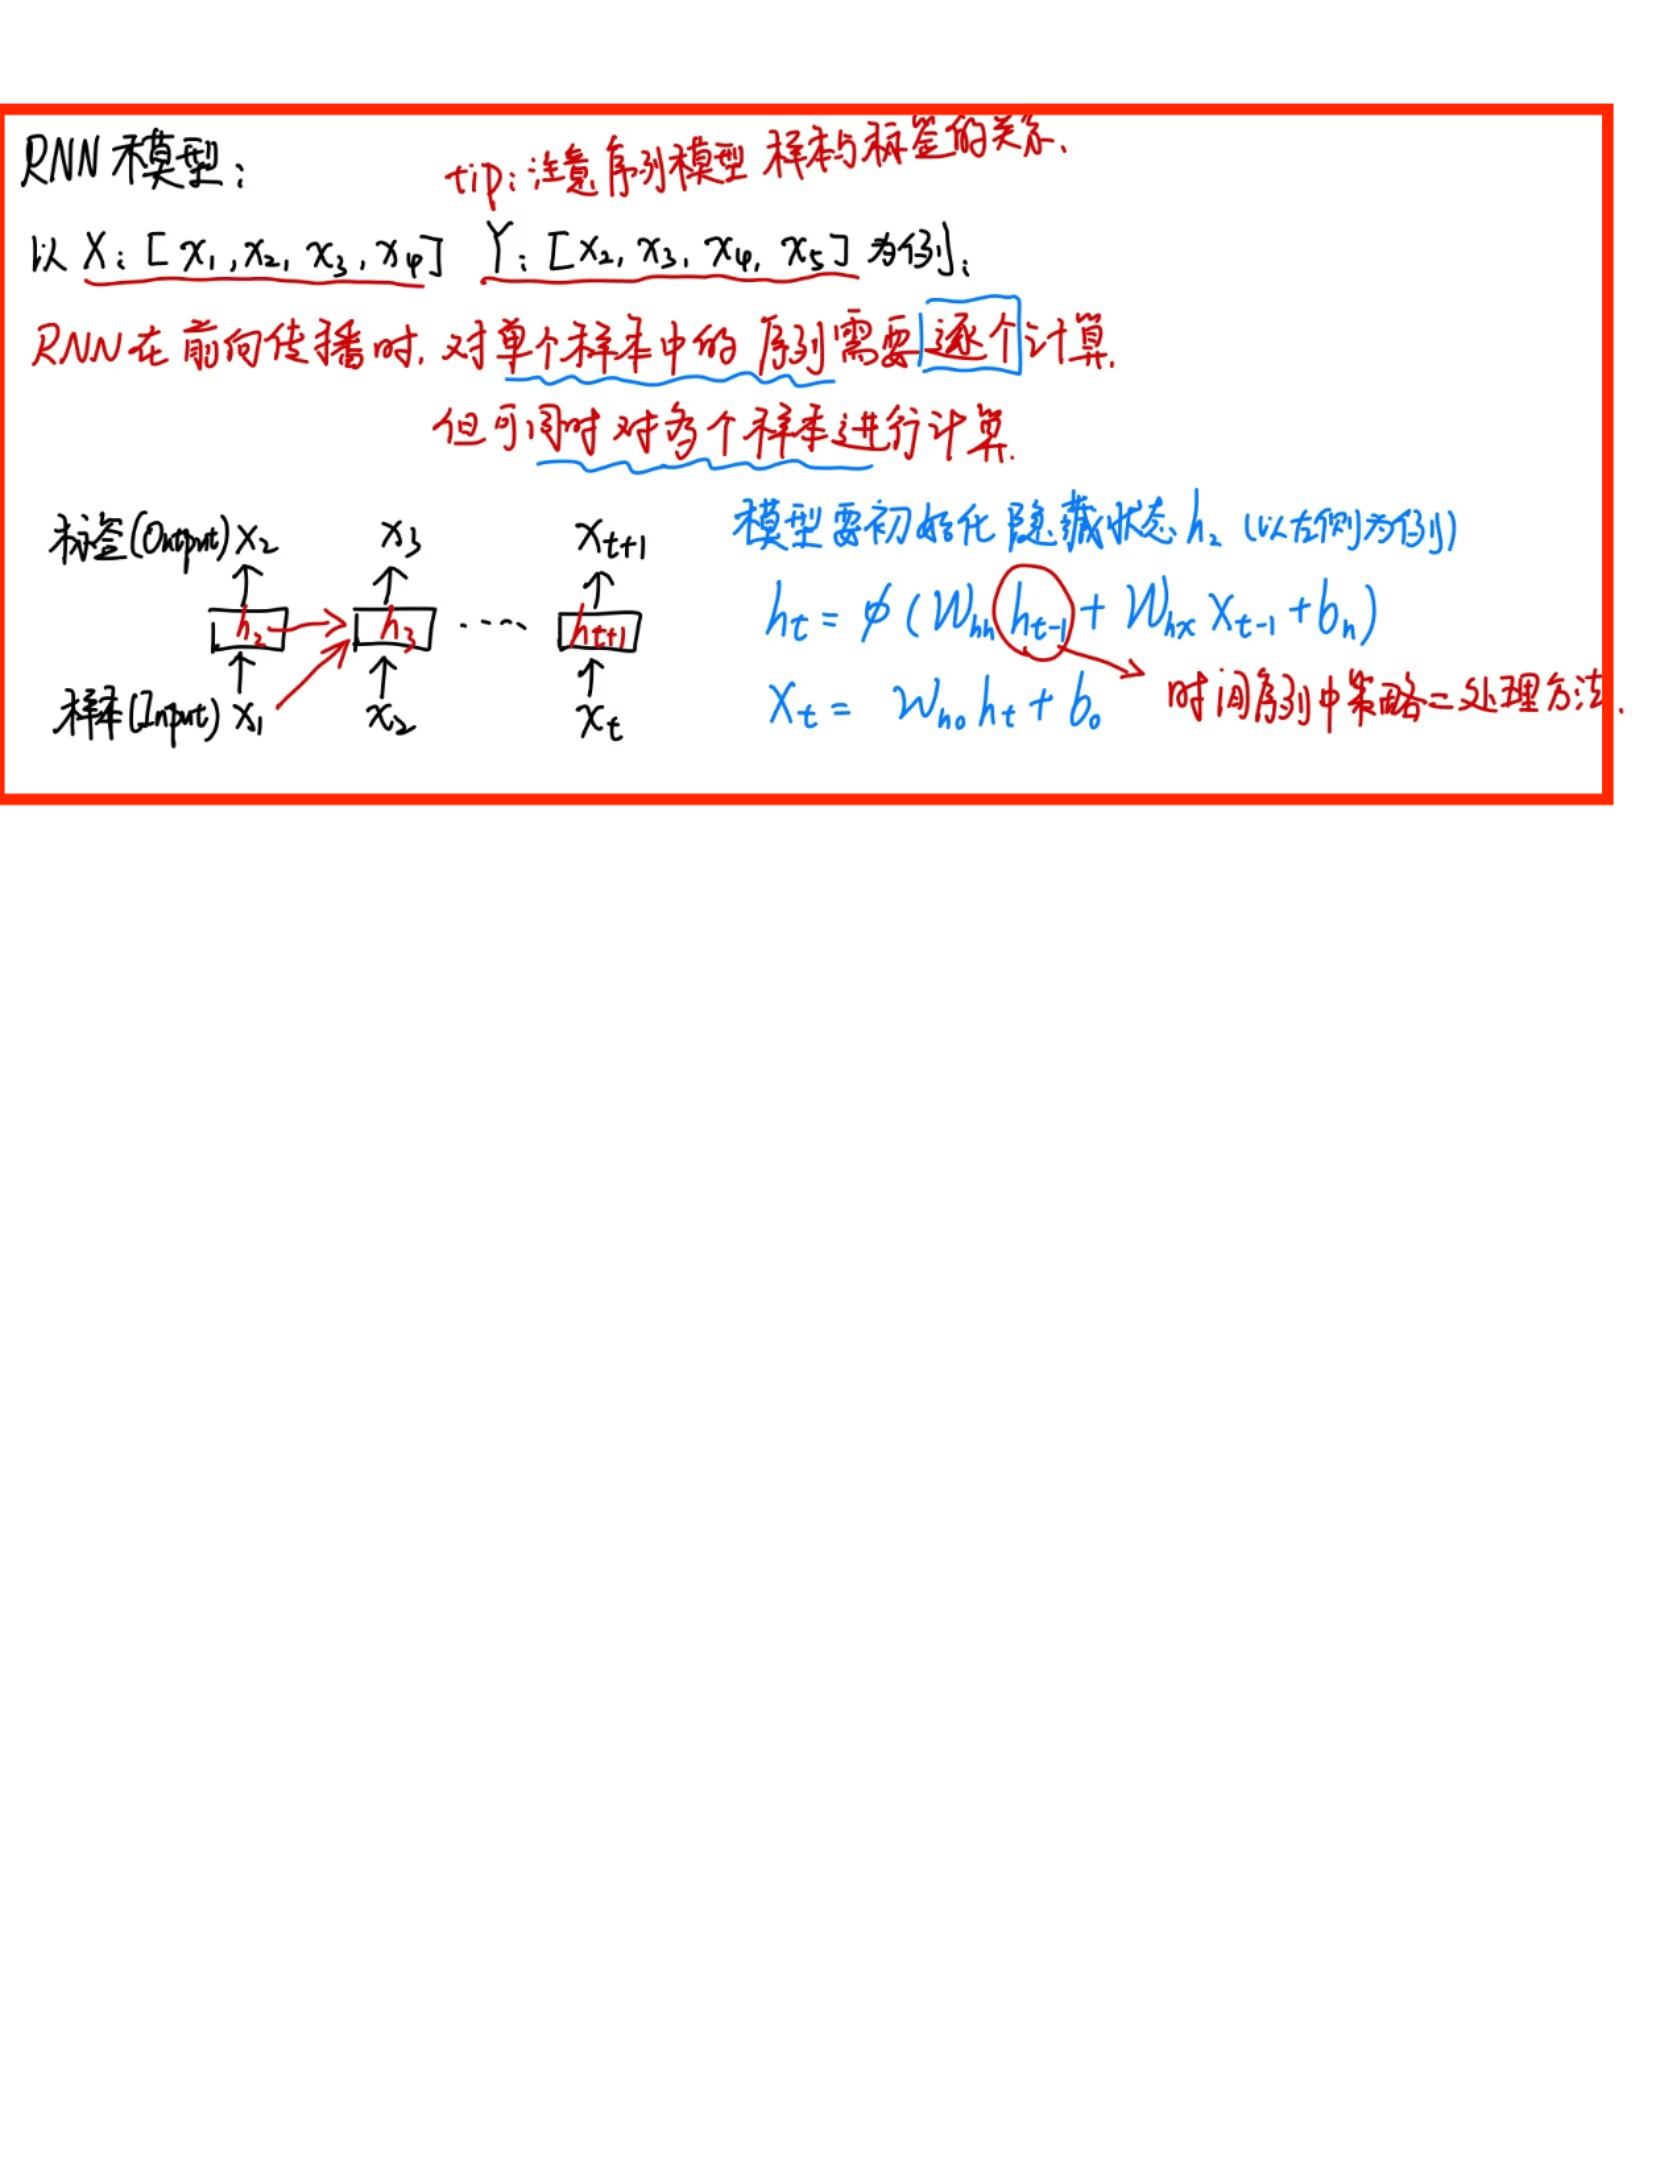 RNN模型：
tip：注意序列模型 样本与标签的关系、
以 X：[x₁,x₂,x₃,x₄] Y：[x₂,x₃,x₄,x₅] 为例：
RNN在前向传播时，对单个样本中的序列需要逐个计算.
但可同时对多个样本进行计算.
标签(Output) x₂ x₃ xₜ₊₁
h₂ h₃ ····· hₜ₊₁
样本(Input) x₁ x₂ xₜ
模型要初始化隐藏状态 h₂ (以左侧为例)
hₜ = φ(W_hh hₜ₋₁ + W_hx xₜ₋₁ + b_h)
xₜ = W_ho hₜ + b_o
时间序列中策略二处理方法.